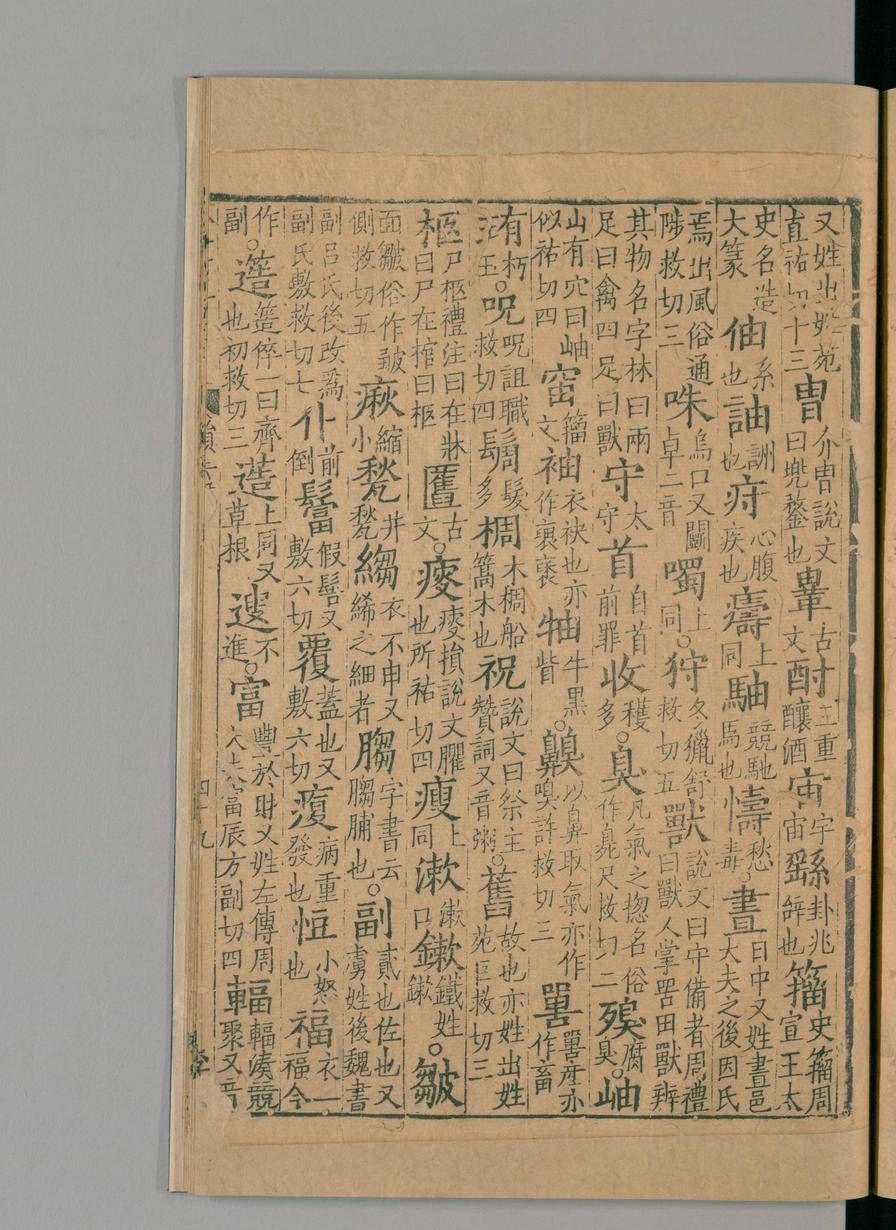 又姓出姓苑直祐切十三胄介胄說文曰兜鍪也古文酎三重釀酒宙宇宙繇卦兆辭也籀史籀周宣王太
史名造大篆伷系也䛆詶也疛心腹疾也上同駎競馳馬也懤愁毒○晝日中又姓晝邑大夫之後因氏
焉出風俗通陟救切三咮鳥口又鬭卓二音噣上同○狩冬獵舒救切五獸說文曰守備者周禮曰獸人掌罟田獸辨
其物名字林曰兩足曰禽四足曰獸守太守首自首前罪收穫多○臭凡氣之揔名俗作臰尺救切二殠腐臭○岫
山有穴曰岫似祐切四籀文袖衣袂也亦作褎褏牰牛黑眥○齅以鼻取氣亦作嗅許救切三嘼嘼產亦作畜
珛朽玉○呪呪詛職救切四髮多椆木椆船篙木也祝說文曰祭主贊詞又音粥○舊故也亦姓出姓苑巨救切三
柩尸柩禮注曰在牀曰尸在棺曰柩匶古文○㾪㾪損說文臞也所祐切四瘦上同漱漱口鏉鐵鏉○皺
面皺俗作皷側救切五瘷縮小甃井甃縐衣不申又絺之細者字書云脯也○副貳也佐也又虜姓後魏書
副呂氏後改爲副氏敷救切七仆前倒假髻又敷六切覆蓋也又敷六切病重發也恒小怒也福衣一福今
作副○簉簉倅一曰齊也初救切三上同又草根不進○富豐於財又姓左傳周大夫富辰方副切四輻輻湊競聚又音
四十九